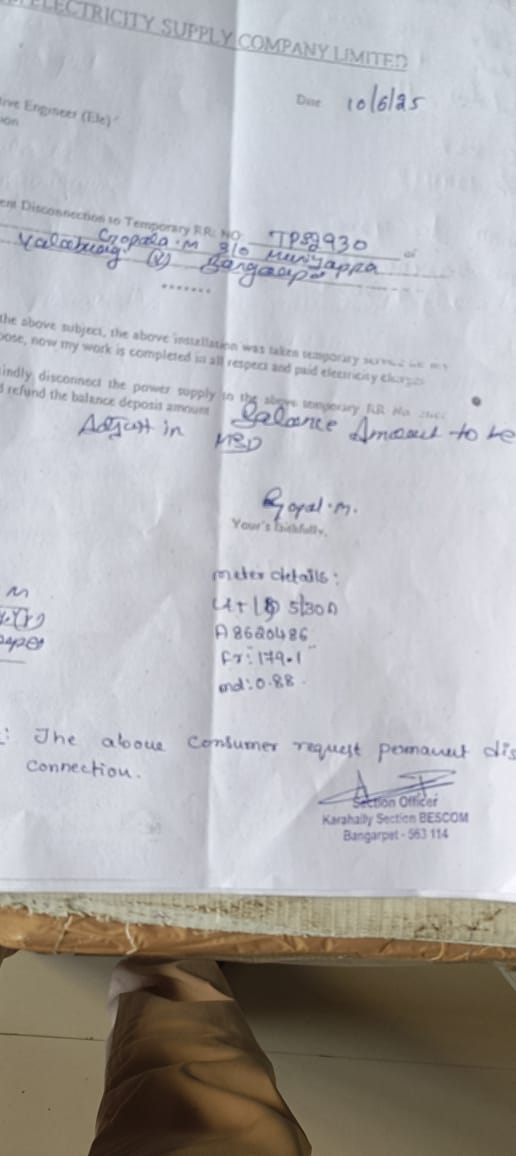 ELECTRICITY SUPPLY COMPANY LIMITED
Date 10/6/25
tive Engineer (Ele)
ion
ent Disconnection to Temporary RR: NO: TPS2930 of
Gopala.M S/o Muniyappa
(V) Bangarpet
.......
the above subject, the above installation was taken temporary
pose, now my work is completed in all respect and paid electricity charges
indly disconnect the power supply to the above temporary RR No
d refund the balance deposit amount Balance Amount to be
Adjust in MSD
Gopal.M.
Your's faithfully,
M
meter details:
L+T 5/30A
A8620486
Fr:179.1
md:0.88.
: The above Consumer request permanent dis
connection.
Section Officer
Karahally Section BESCOM
Bangarpet - 563 114